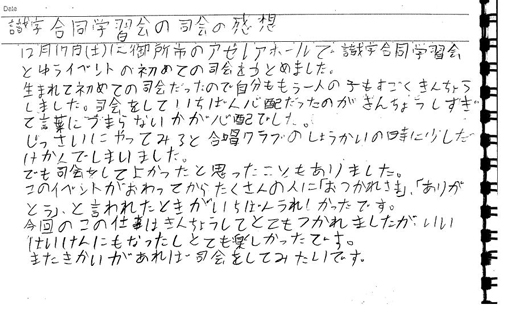 Date
識字合同学習会の司会の感想
12月17日(土)に御所市のアゼレアホールで、識字合同学習会
とゆうイベントの初めての司会をつとめました。
生まれて初めての司会だったので自分ももう一人の子もすごくきんちょう
しました。司会をしていちばん心配だったのがきんちょうしすぎ
て言葉につまらないかが心配でした。
じっさいにやってみると合唱クラブのしょうかいの時に少しだ
けかんでしまいました。
でも司会をして上かったと思ったこともありました。
このイベントがおわってからたくさんの人に「おつかれさま」、「ありが
とう」、と言われたときがいちばんうれしかったです。
今回のこの仕事はきんちょうしてとてもつかれましたが、いい
けいけんにもなったしとても楽しかったです。
またきかいがあれば司会をしてみたいです。